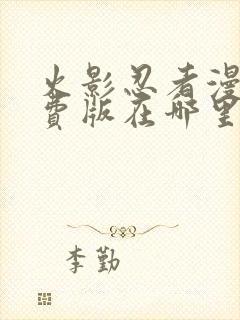 火影忍者漫
费版在哪里
李勤